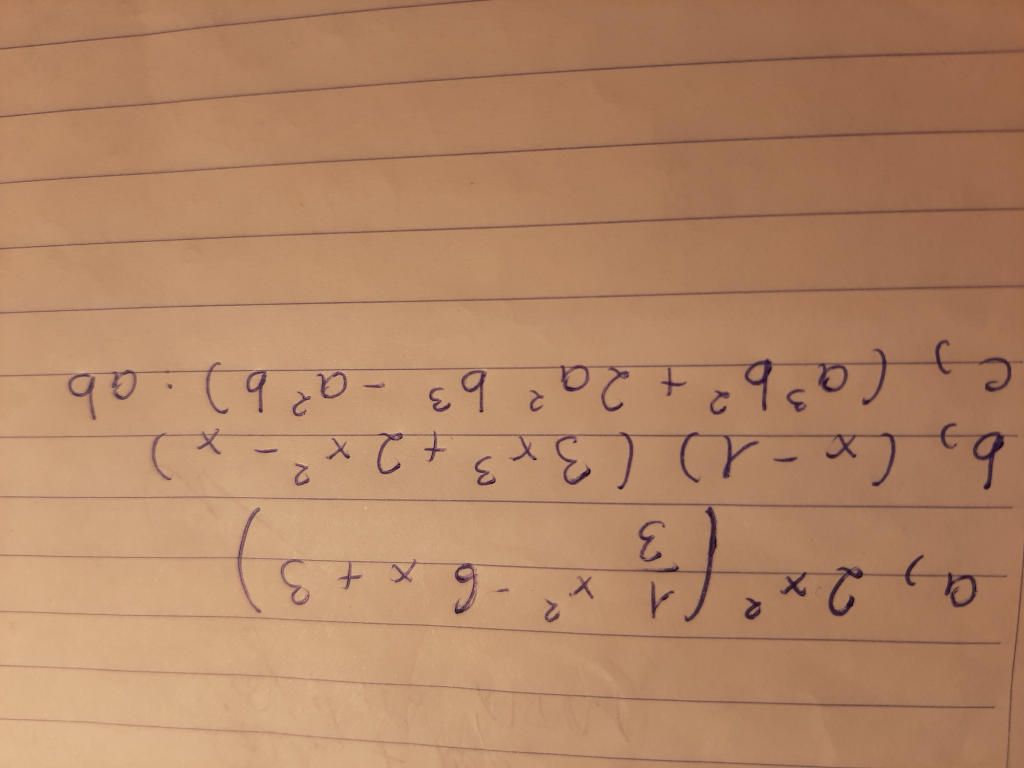 a, 2x² (1/3 x² - 6x + 3)
b, (x - 1) (3x³ + 2x² - x)
c, (a³b² + 2a²b³ - a²b) . ab